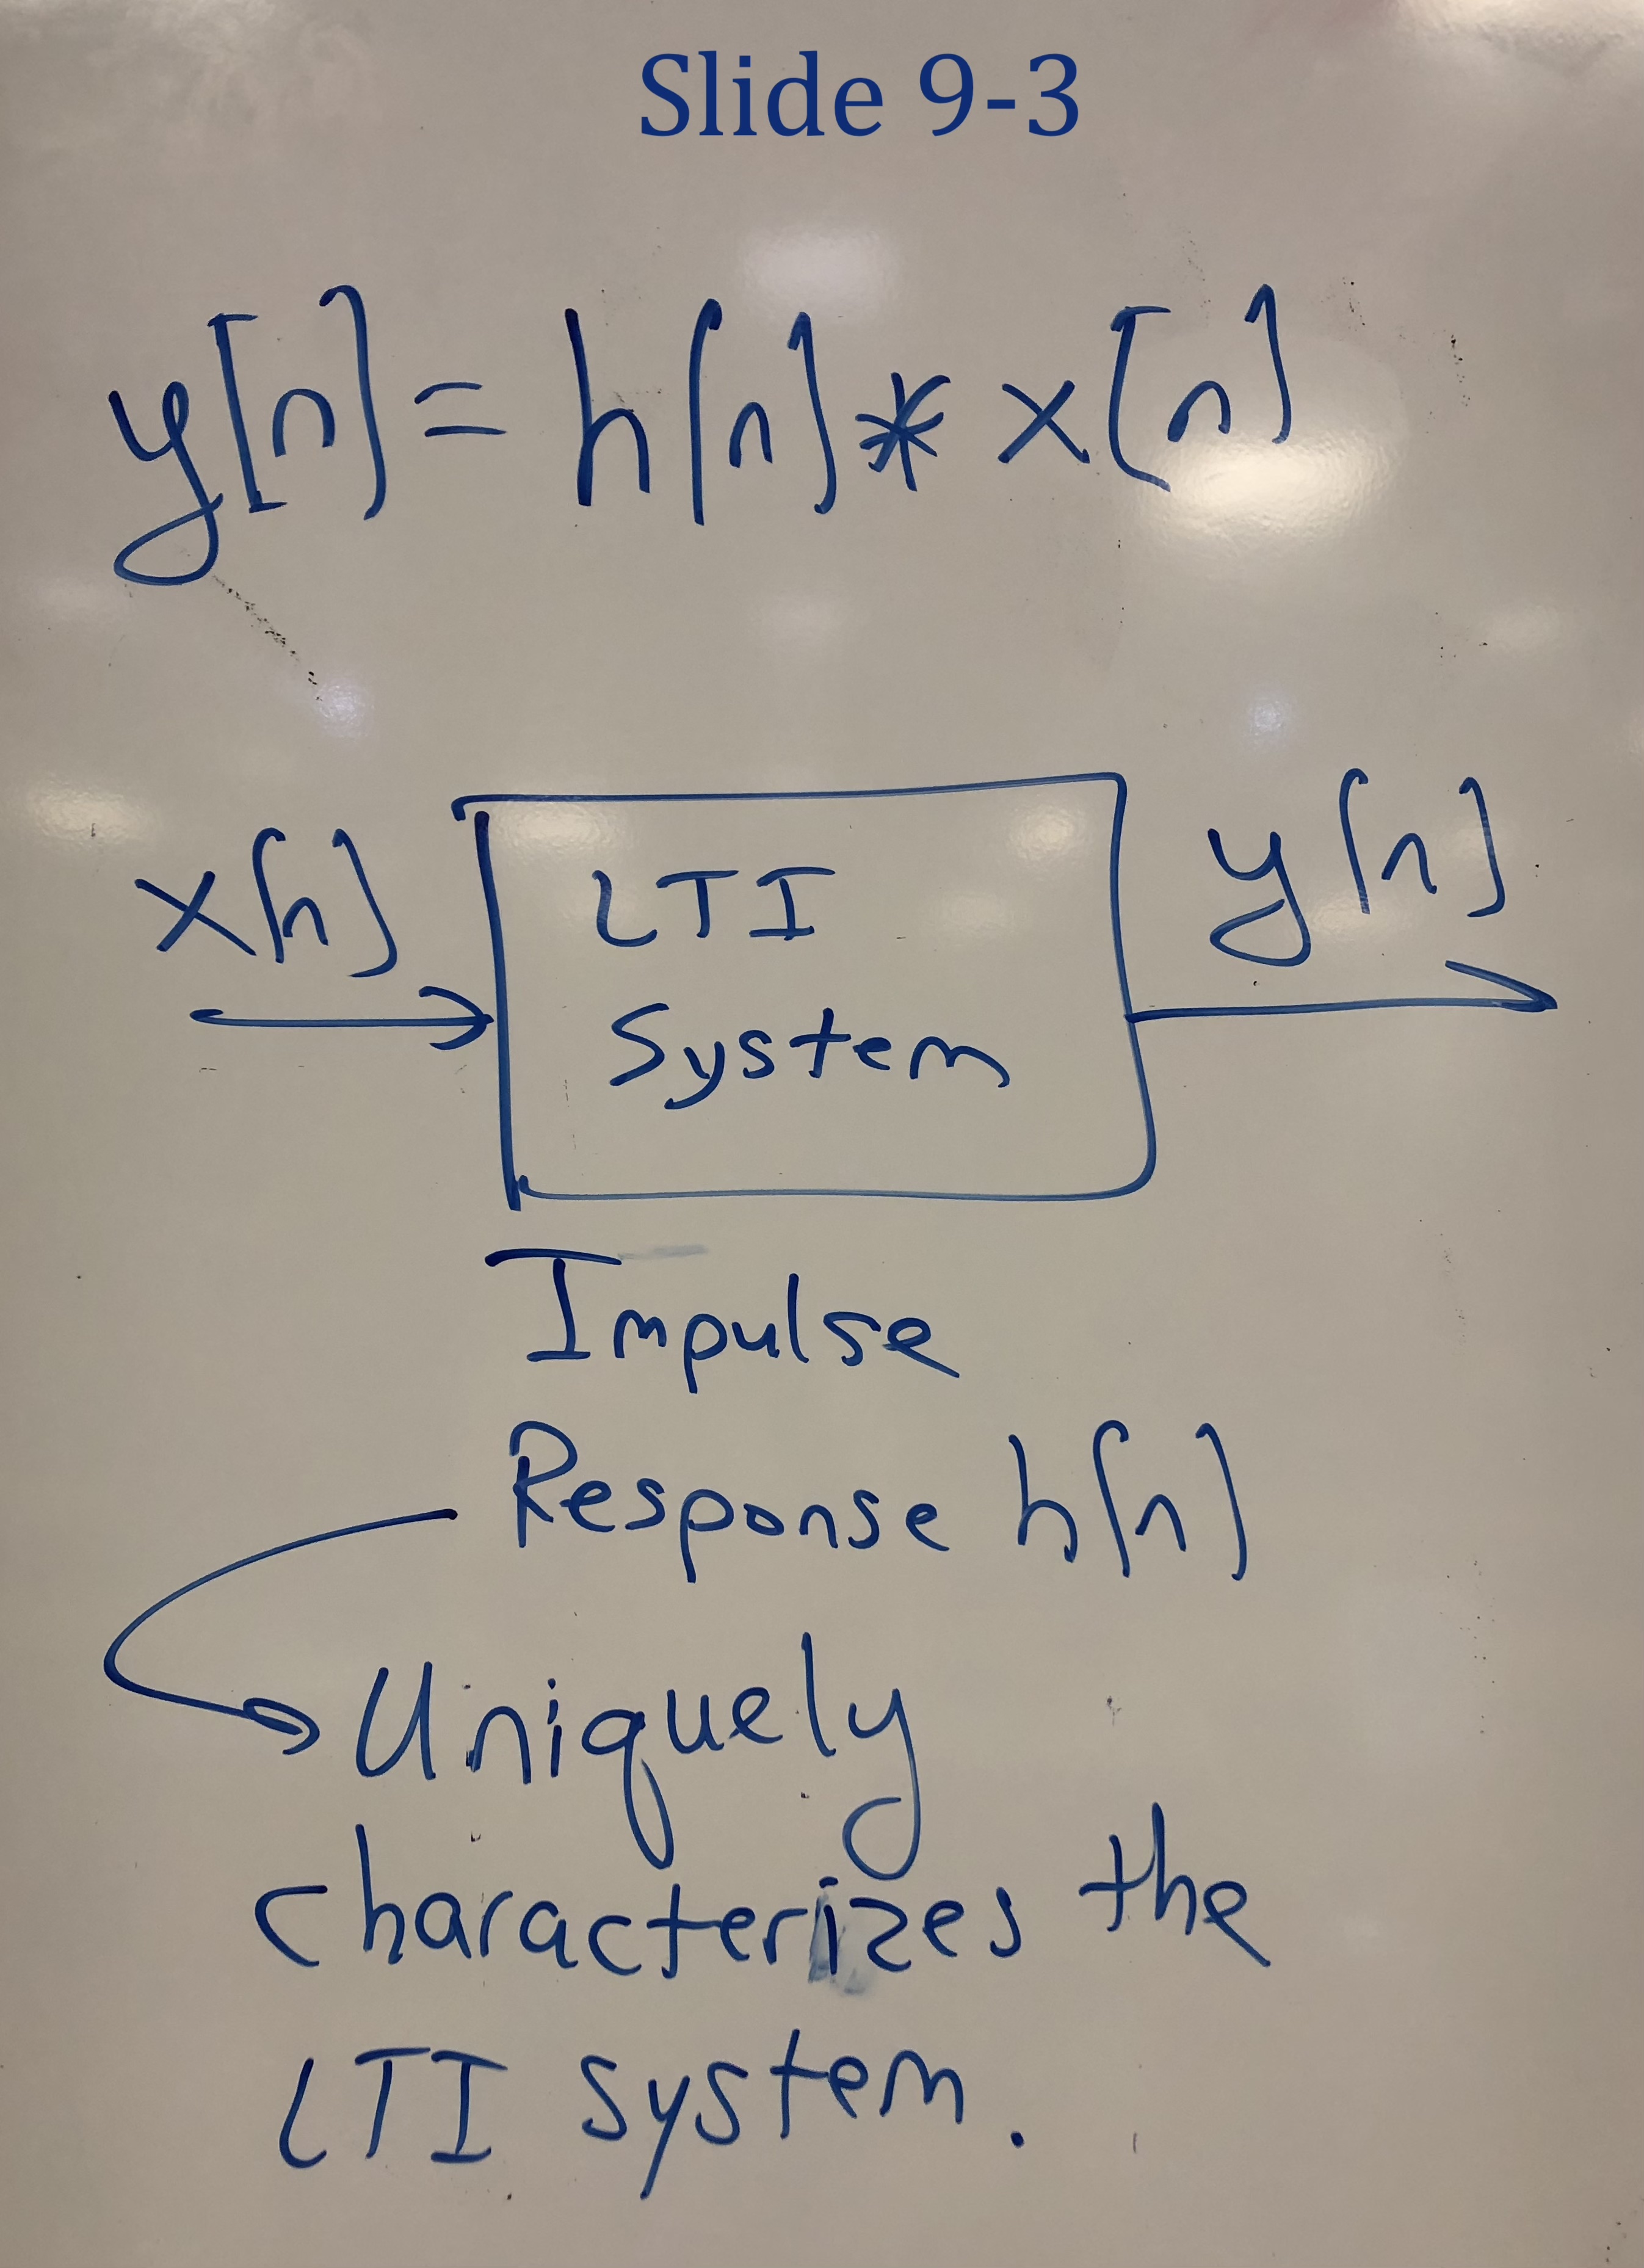 Slide 9-3
y[n] = h[n] * x[n]
x[n]
LTI
System
y[n]
Impulse
Response h[n]
Uniquely
characterizes the
LTI system.